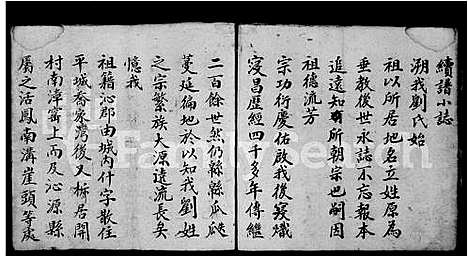 續譜小誌
溯我劉氏始
祖以所居地名立姓原爲
垂教後世永誌不忘報本
追遠知有所朝宗也嗣因
祖德流芳
宗功衍慶佑啟我後寖熾
寖昌歷經四千多年傳繼
二百餘世然仍緜緜瓜瓞
蔓延徧地於以知我劉姓
之宗繁族大原遠流長矣
憶我
祖籍沁郡由城內什字散住
平城喬家溝後又柝居開
村南漳窰上而及沁源縣
屬之活鳳南溝崖頭等處
FamilySearch